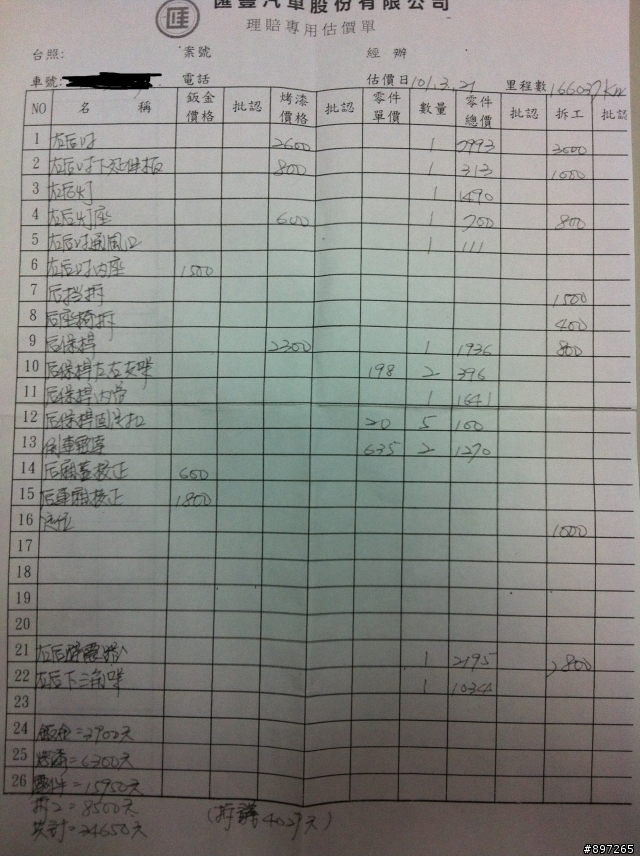 匯
匯豐汽車股份有限公司
理賠專用估價單
台照: 案號 經辦
車號: 電話 估價日 101.3.21 里程數 166037Km
NO 名稱 鈑金價格 批認 烤漆價格 批認 零件單價 數量 零件總價 批認 拆工 批認
1 左后叶 2600 1 2993 3000
2 左后叶下延伸板 800 1 313 1000
3 左后灯 1 1490
4 左后灯座 600 1 700 800
5 左后叶通風口 1 111
6 左后叶內座 1500
7 后挡拆 1500
8 后座椅拆 400
9 后保桿 2300 1 1936 800
10 后保桿左右支架 198 2 396
11 后保桿內骨 1 1641
12 后保桿固定扣 20 5 100
13 倒車電眼 635 2 1270
14 后廂蓋校正 600
15 后車廂校正 1800
16 定位 1000
17
18
19
20
21 左后 1 2195 2800
22 左后下三角架 1 1034
23
24 鈑金=3900元
25 烤漆=6300元
26 零件=15950元
拆工=8500元
共計=34650元 (折讓4027元)
#897265